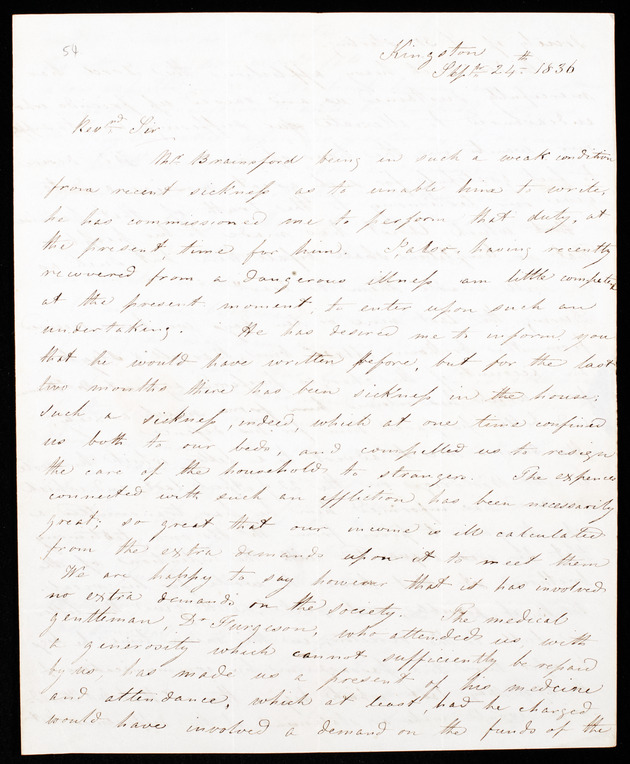 54
Kingston
Sept. 24th 1836
Revnd. Sir
Mr. Brainsford being in such a weak condition
from recent sickness as to unable him to write,
he has commissioned me to perform that duty, at
the present time for him. I, also, having recently
recovered from a dangerous illness am little competent
at the present moment, to enter upon such an
undertaking. He has desired me to inform you
that he would have written before, but for the last
two months there has been sickness in the house;
such a sickness, indeed, which at one time confined
us both to our beds, and compelled us to resign
the care of the household to strangers. The expences
connected with such an affliction, has been necessarily
great; so great that our income is ill calculated
from the extra demands upon it to meet them
We are happy to say however that it has involved
no extra demands on the society. The medical
gentleman, Dr. Furgeson, who attended us, with
a generosity which cannot sufficiently be repaid
by us, has made us a present of his medicine
and attendance, which at least, had he charged
would have involved a demand on the funds of the